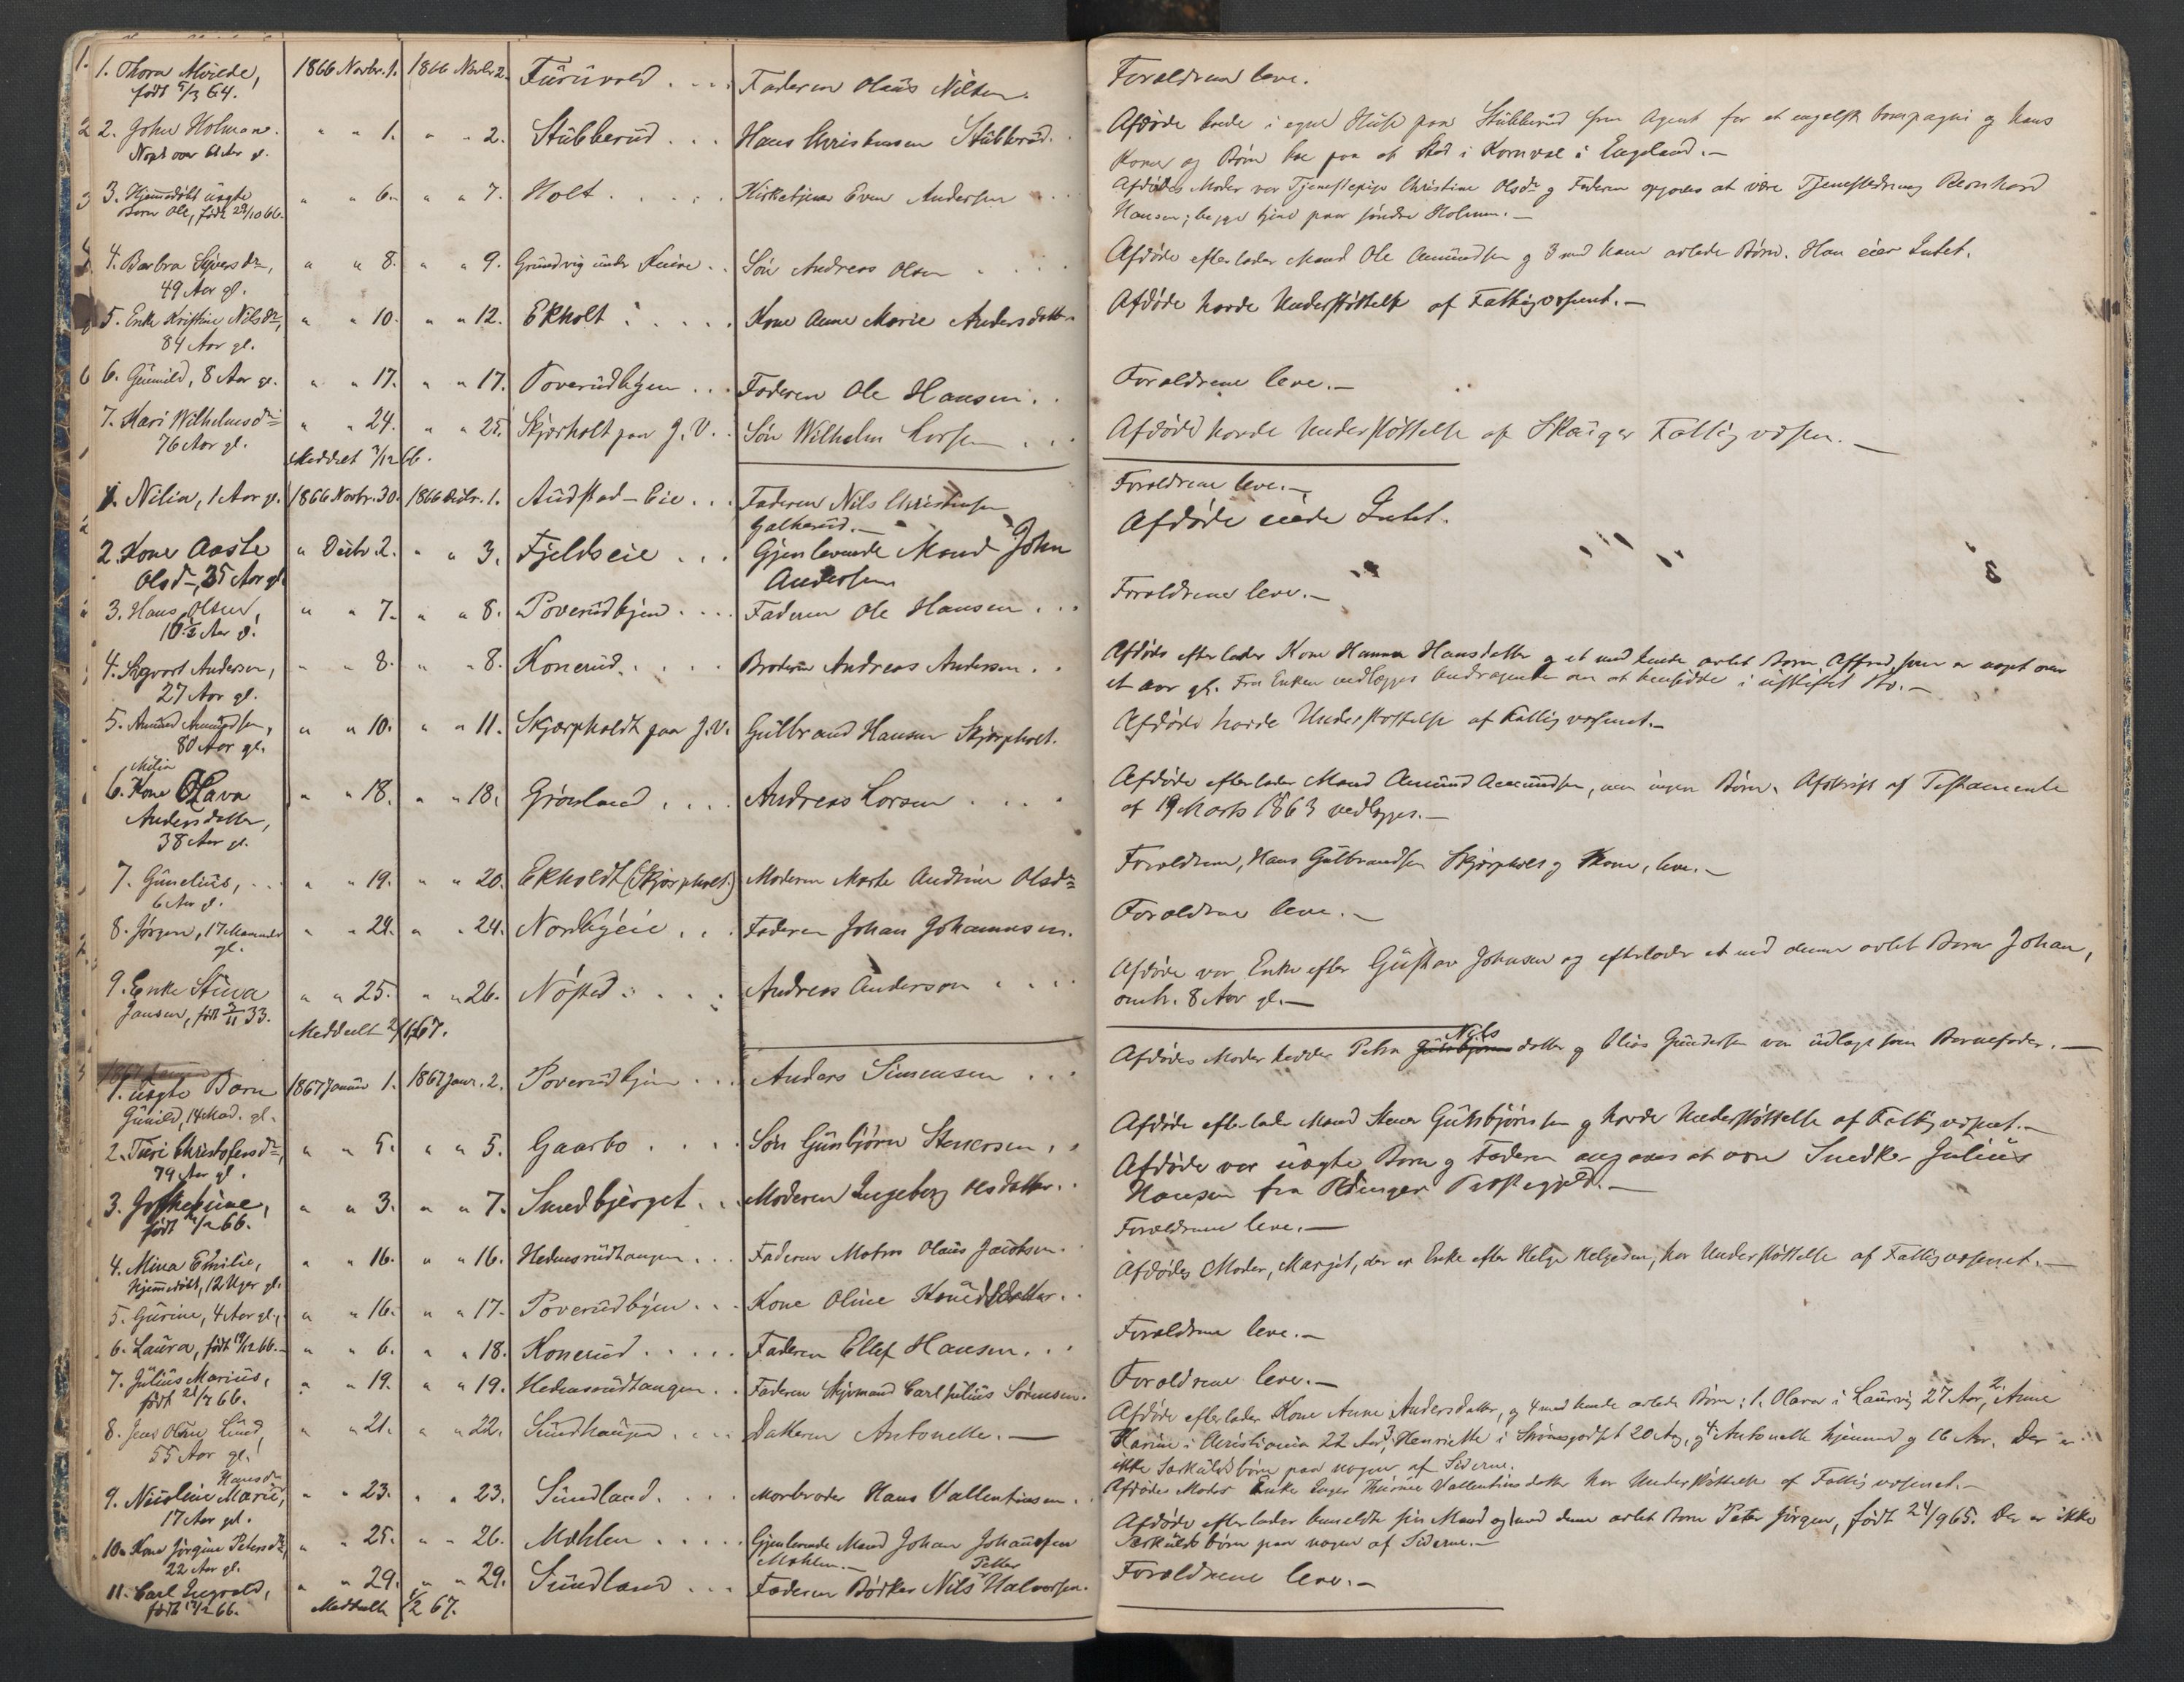 1. 1. Thora Alvilde, 1866 Novbr. 1. 1866 Novbr. 2. Furuvald . . . Faderen Olaus Nilsen. Forældrene leve.
født 5/3 64.
2 2. John Holman. " " 1. " " 2. Stubberud . . . Hans Christensen Stubberud. Afdøde boede i egne Huse paa Stubberud som Agent for et engelsk Compagni og hans
Kone og Børn boe paa et Sted i Kornval i England.—
3 3. Hjemmedøbt uægte " " 6. " " 7. Holt . . . . Kirketjener Even Andersen . . Afdødes Moder var Tjenestepige Christine Olsdr og Faderen opgives at være Tjenestedreng Bernhard
Barn Ole, født 29/10 66. Hansen; begge tjene paa søndre Holmen.—
4. Barbra Sivers dr, " " 8. " " 9. Grundvig under . . Søn Andreas Olsen . . . . Afdøde efterlader Mand Ole Amundsen og 3 med ham avlede Børn. Han eier Intet.
49 Aar gl.
5. Enke Kristine Nilsdr, " " 10. " " 12. Ekholt . . . . . Kone Anne Marie Andersdatter Afdøde havde Understøttelse af Fattigvæsenet.—
84 Aar gl.
6 6. Gunnild, 8 Aar gl. " " 17. " " 17. Poverudbyen . . . Faderen Ole Hansen. . Forældrene leve.—
7. Kari Wilhelmsdr " " 24. " " 25. Skjærholt paa J.V. . Søn Wilhelm Larsen . . . Afdøde havde Understøttelse af Skauger Fattigvæsen.—
76 Aar gl.
Meddelt 3/12 66.
1. Nilia, 1 Aar gl. 1866 Novbr. 30. 1866 Decbr. 1. Audstad-Eie . . . Faderen Nils Christensen Forældrene leve.—
Galterud.—
2. Kone Aaste " Decbr. 2. " " 3. Fjeldseie . . . Gjenlevende Mand John Afdøde eiede Intet.
Olsdr, 35 Aar gl. Andersen
3. Hans Olsen, " " 7. " " 8. Poverudbyen . . . . Faderen Ole Hansen . . . Forældrene leve.—
10 1/2 Aar gl.
4. Sigvart Andersen, " " 8. " " 8. Konerud . . . . Broderen Andreas Andersen . . Afdøde efterlader Kone Hanna Hansdatter og et med hende avlet Barn Alfred, som er noget over
27 Aar gl. et Aar gl. Fra Enken vedlægges Andragende om at hensidde i uskiftet Bo.—
5. Amund Amundsen, " " 10. " " 11. Skjærpholdt paa J.V. Gulbrand Hansen Skjærpholt. Afdøde havde Understøttelse af Fattigvæsenet.—
80 Aar gl.
Milia
6. Kone Olava " " 18. " " 18. Grønland . . . . Andreas Larsen . . . . Afdøde efterlader Mand Amund Amundsen, men ingen Børn. Afskrift af Testamente
Andersdatter, af 19 Marts 1863 vedlægges.—
38 Aar gl.
7. Gunelius, . . " " 19. " " 20. Ekholdt (Skjærpholt.) Moderen Marte Andrine Olsdr Forældrene, Hans Gulbrandsen Skjærpholt og Kone, leve.—
6 Aar gl.
8. Jørgen, 17 Maaneder " " 24. " " 24. Nordbyeie . . . Faderen Johan Johannesen. Forældrene leve.—
gl.
9. Enke Stina " " 25. " " 26. Nøsted . . . . Andreas Anderson . . . . Afdøde var Enke efter Gustav Johnsen og efterlader et med denne avlet Barn Johan,
Jansen, født 2/11 33. omtr. 8 Aar gl.—
Meddeelt 2/1 67.
1. uægte Barn 1867 Januar 1. 1867 Janr. 2. Poverudbyen . . . Anders Simensen . . . Afdødes Moder hedder Petra Nilsdatter og Elias Gundersen var udlagt som Barnefader.—
Gunild, 14 Mdr. gl.
2. Turi Christofersdr, " " 5. " " 5. Gaarbo . . . . Søn Gunbjørn Stenersen . . Afdøde efterlader Mand Stener Gunbjørnsen og havde Understøttelse af Fattigvæsenet.—
79 Aar gl.
3. Josephine, " " 3. " " 7. Smedbjerget . . . Moderen Ingeborg Olsdatter. . Afdøde var uægte Barn og Faderen angives at være Snedker Julius
født /12 66. Hansen fra Præstegjeld.—
4. Mina Emilie, " " 16. " " 16. Hedensrudtangen . . . Faderen Matros Olaus Jacobsen. Forældrene leve.—
hjemmedøbt, 12 Uger gl.
5. Gurine, 4 Aar gl., " " 16. " " 17. Poverudbyen . . . Kone Oline Knudsdatter. . Afdødes Moder, Margit, der er Enke efter Helge Helgesen, har Understøttelse af Fattigvæsenet.—
6. Laura, født 19/12 66.— " " 6. " " 18. Konerud . . . . . Faderen Ellef Hansen . . . Forældrene leve.—
7. Julius Marius, " " 19. " " 19. Hedensrudtangen . . Faderen Styrmand Carl Julius Sørensen. Forældrene leve.—
født 21/7 66.
8. Jens Olsen Lund, " " 21. " " 22. Sundhaugen . . . Datteren Antonette.— Afdøde efterlader Kone Anne Andersdatter, og 4 med hende avlede Børn: 1. Olava i Laurvig 27 Aar, 2. Anne
55 Aar gl. Karine i Christiania 22 Aar, 3. Henriette i Strømsgodset 20 Aar, og 4. Antonette hjemme og 16 Aar. Der er
ikke Særkuldsbørn paa nogen af Siderne.
Hansdr
9. Nicoline Marie, " " 23. " " 23. Sundland . . . . Morbroder Hans Vallentinsen . Afdødes Moder Enke Inger Thurine Vallentinsdatter har Understøttelse af Fattigvæsenet.—
17 Aar gl.
10. Kone Jørgine Petersdr, " " 25. " " 26. Mæhlen . . . . . Gjenlevende Mand Johan Johannesen Afdøde efterlader bemeldte sin Mand og 1 med denne avlet Barn Peter Jørgen, født 24/9 65. Der er ikke
22 Aar gl. Mæhlen.— Særkuldsbørn paa nogen af Siderne.—
Petter
11. Carl Ingvald, " " 29. " " 29. Sundland . . . Faderen Bødker Nils Halvorsen. Forældrene leve.—
født 13/12 66. Meddeelt 1/2 67.